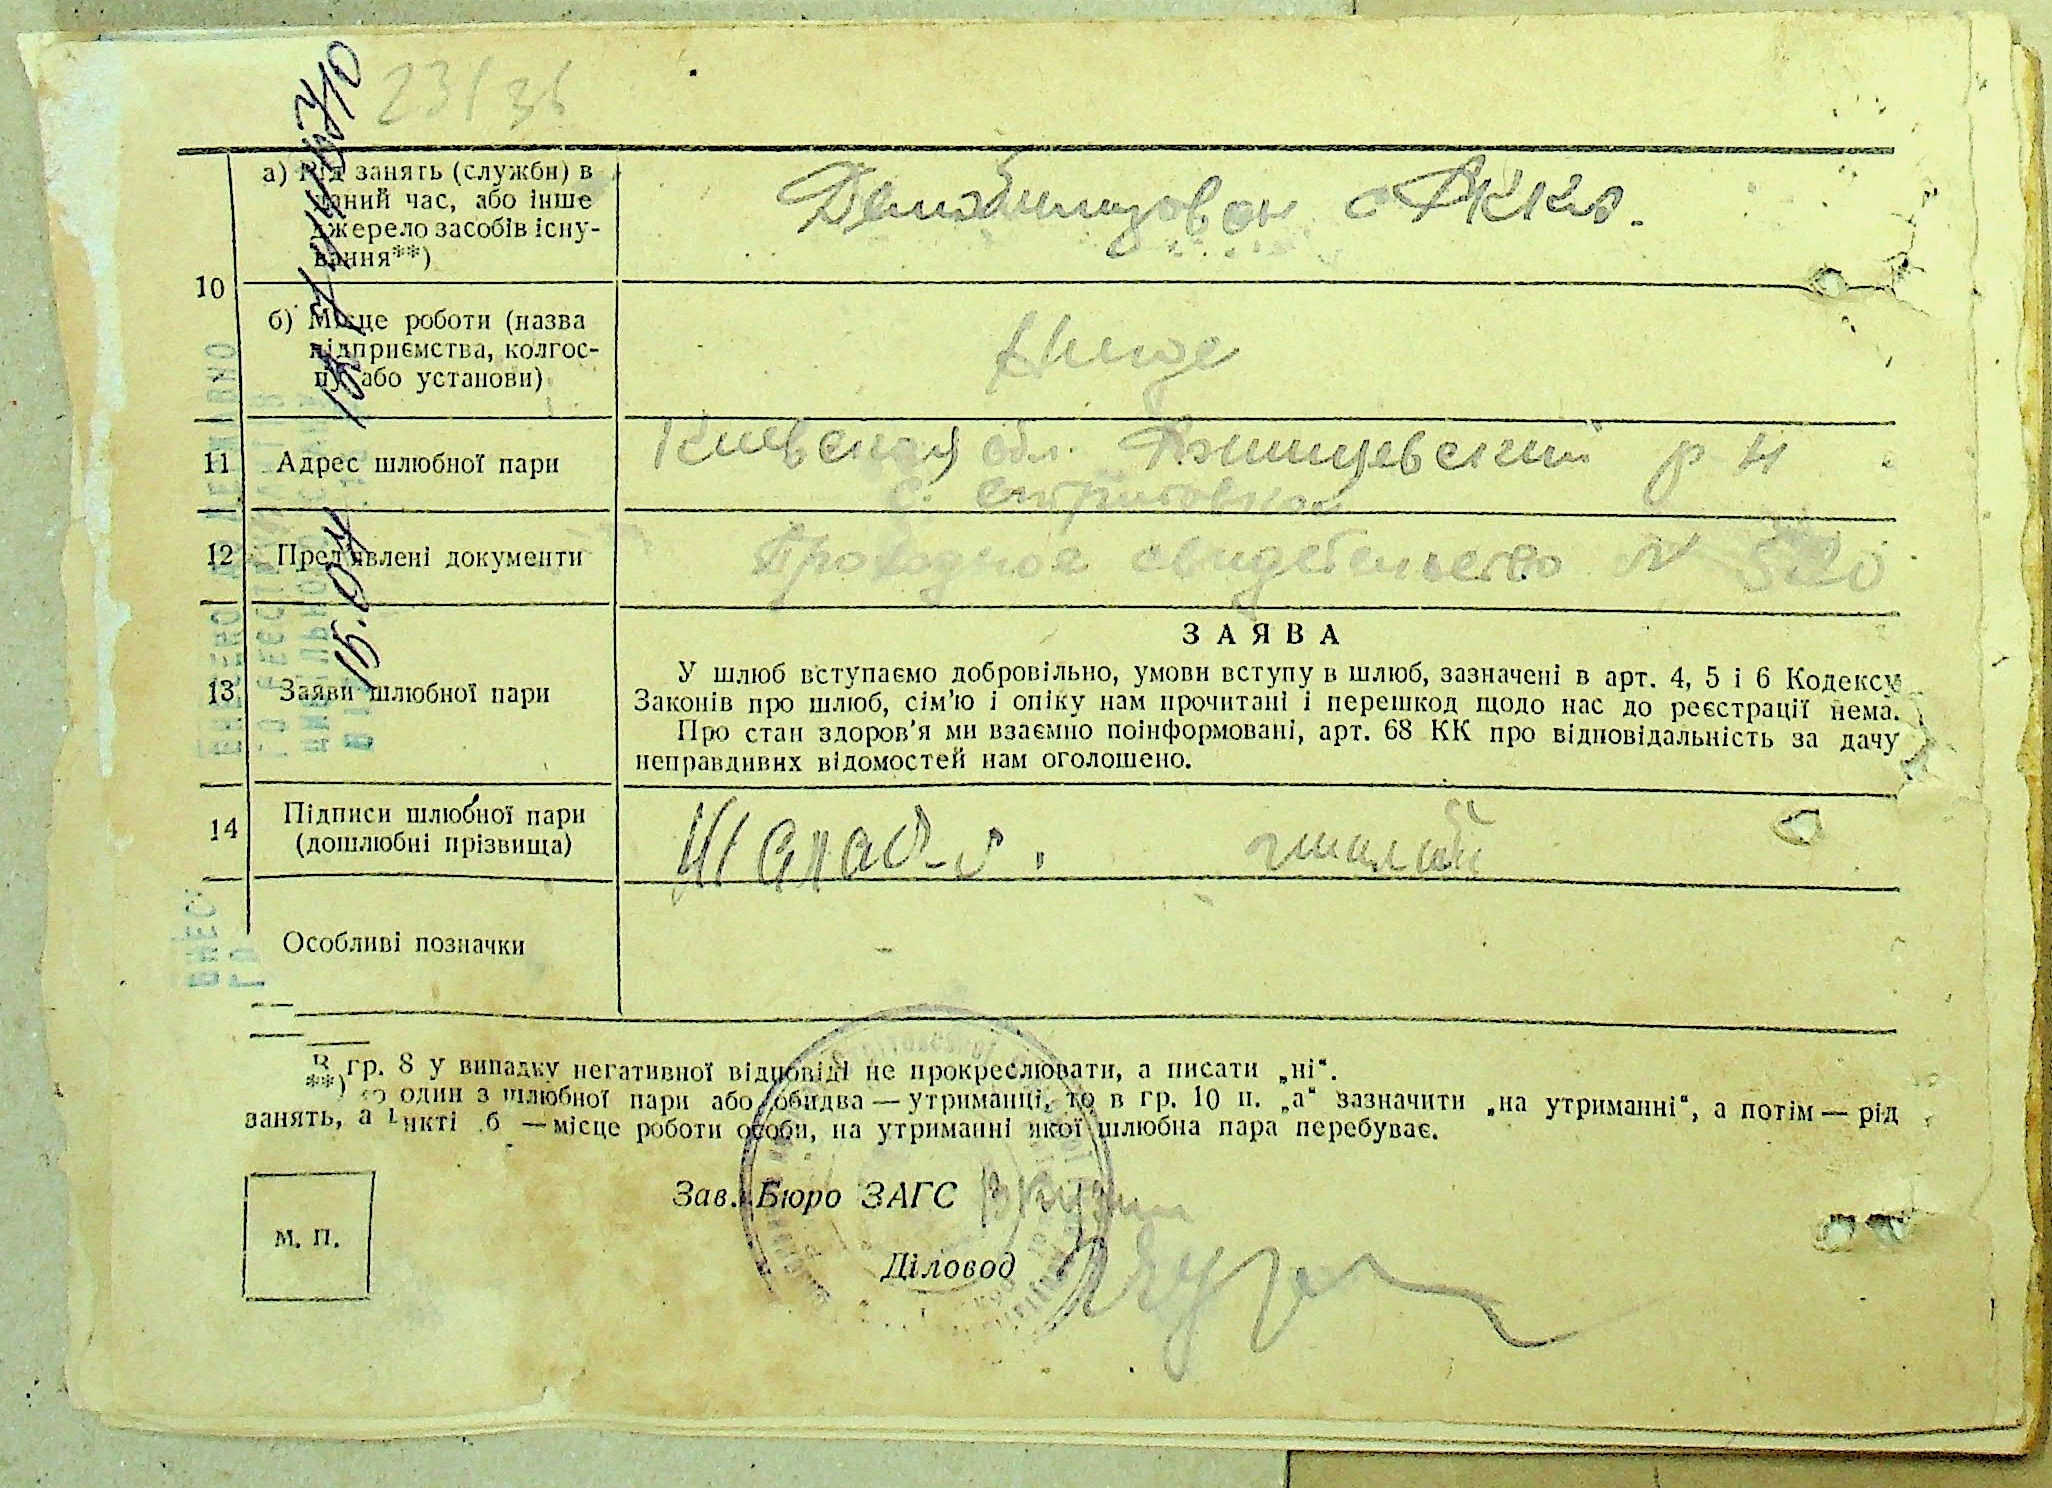 23/36
а) Рід занять (служби) в
даний час, або інше
джерело засобів існу-
вання**)
Демобилизован с РККА.
10
б) Місце роботи (назва
підприємства, колгос-
пу або установи)
Нигде
11 Адрес шлюбної пари
Киевская обл. Ржищевский р н
с. Стритовка
12 Пред'явлені документи
Проходное свидетельство № 520
13 Заяви шлюбної пари
ЗАЯВА
У шлюб вступаємо добровільно, умови вступу в шлюб, зазначені в арт. 4, 5 і 6 Кодексу
Законів про шлюб, сім'ю і опіку нам прочитані і перешкод щодо нас до реєстрації нема.
Про стан здоров'я ми взаємно поінформовані, арт. 68 КК про відповідальність за дачу
неправдивих відомостей нам оголошено.
14
Підписи шлюбної пари
(дошлюбні прізвища)
Особливі позначки
В гр. 8 у випадку негативної відповіді не прокреслювати, а писати „ні“.
**) один з шлюбної пари або обидва — утриманці, то в гр. 10 п. „а“ зазначити „на утриманні“, а потім — рід
занять, а нкті б — місце роботи особи, на утриманні якої шлюбна пара перебуває.
Зав. Бюро ЗАГС
Діловод
М. П.